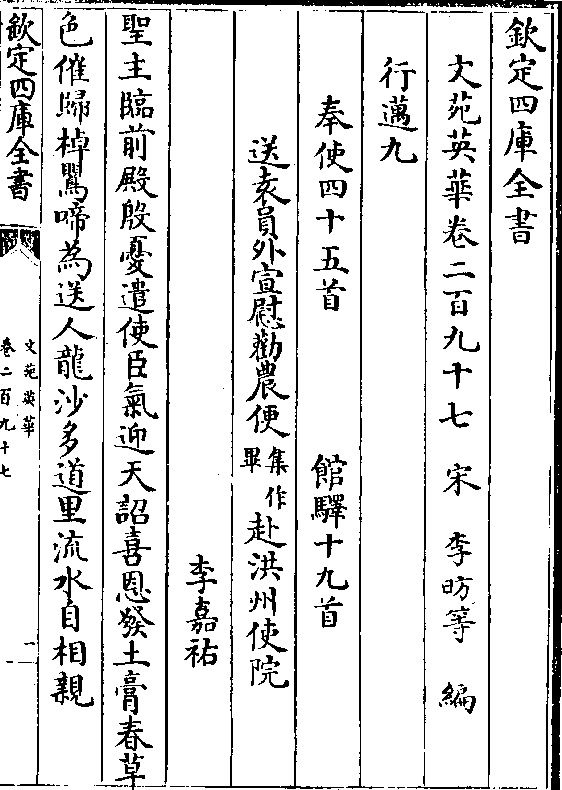 欽定四庫全書
文苑英華卷二百九十七　宋　李昉等　編
行邁九
奉使四十五首　館驛十九首
送袁員外宣慰勸農便集作畢赴洪州使院
李嘉祐
聖主臨前殿殷憂遣使臣氣迎天詔喜恩發土膏春草
色催歸棹鶯啼為送人龍沙多道里流水自相親
欽定四庫全書
文苑英華
卷二百九十七
一